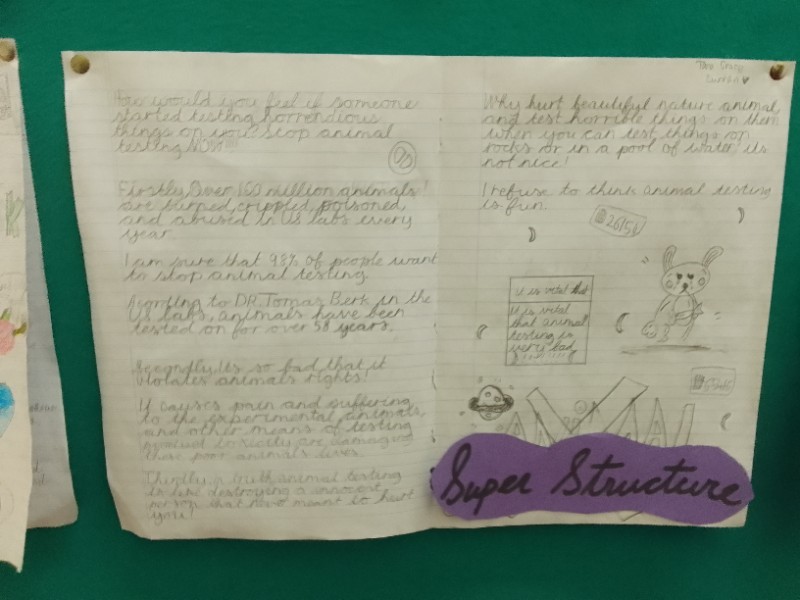 How would you feel if someone
started testing horrendious
things on you? Stop animal
testing NOW!!!
Firstly, Over 100 million animals
are burned, crippled, poisoned,
and abused in us labs every
year.
I am sure that 98% of people want
to stop animal testing.
to DR. Tomas Berk in the
US labs, animals have been
tested on for over 50 years.
Secondly, its so bad that it
violates animals rights!
It causes pain and suffering
to the experimental animals,
and other means of testing
product toxicity are damaging
these poor animals lives.
Thirdly, in truth animal testing
is like destroying a innocent
person that have meant to hurt
you!
Why hurt beautiful nature animal,
and test horrible things on them
when you can test things on
rocks or in a pool of water, its
not nice!
I refuse to think animal testing
is fun.
it is vital that
it is vital
that animal
testing is
very bad
Super Structure